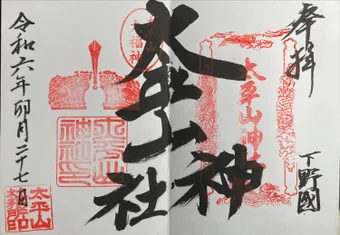 奉拝
下野國
太平山神社
太平山神社
太平山
神社之印
令和六年卯月二十七日
太平山